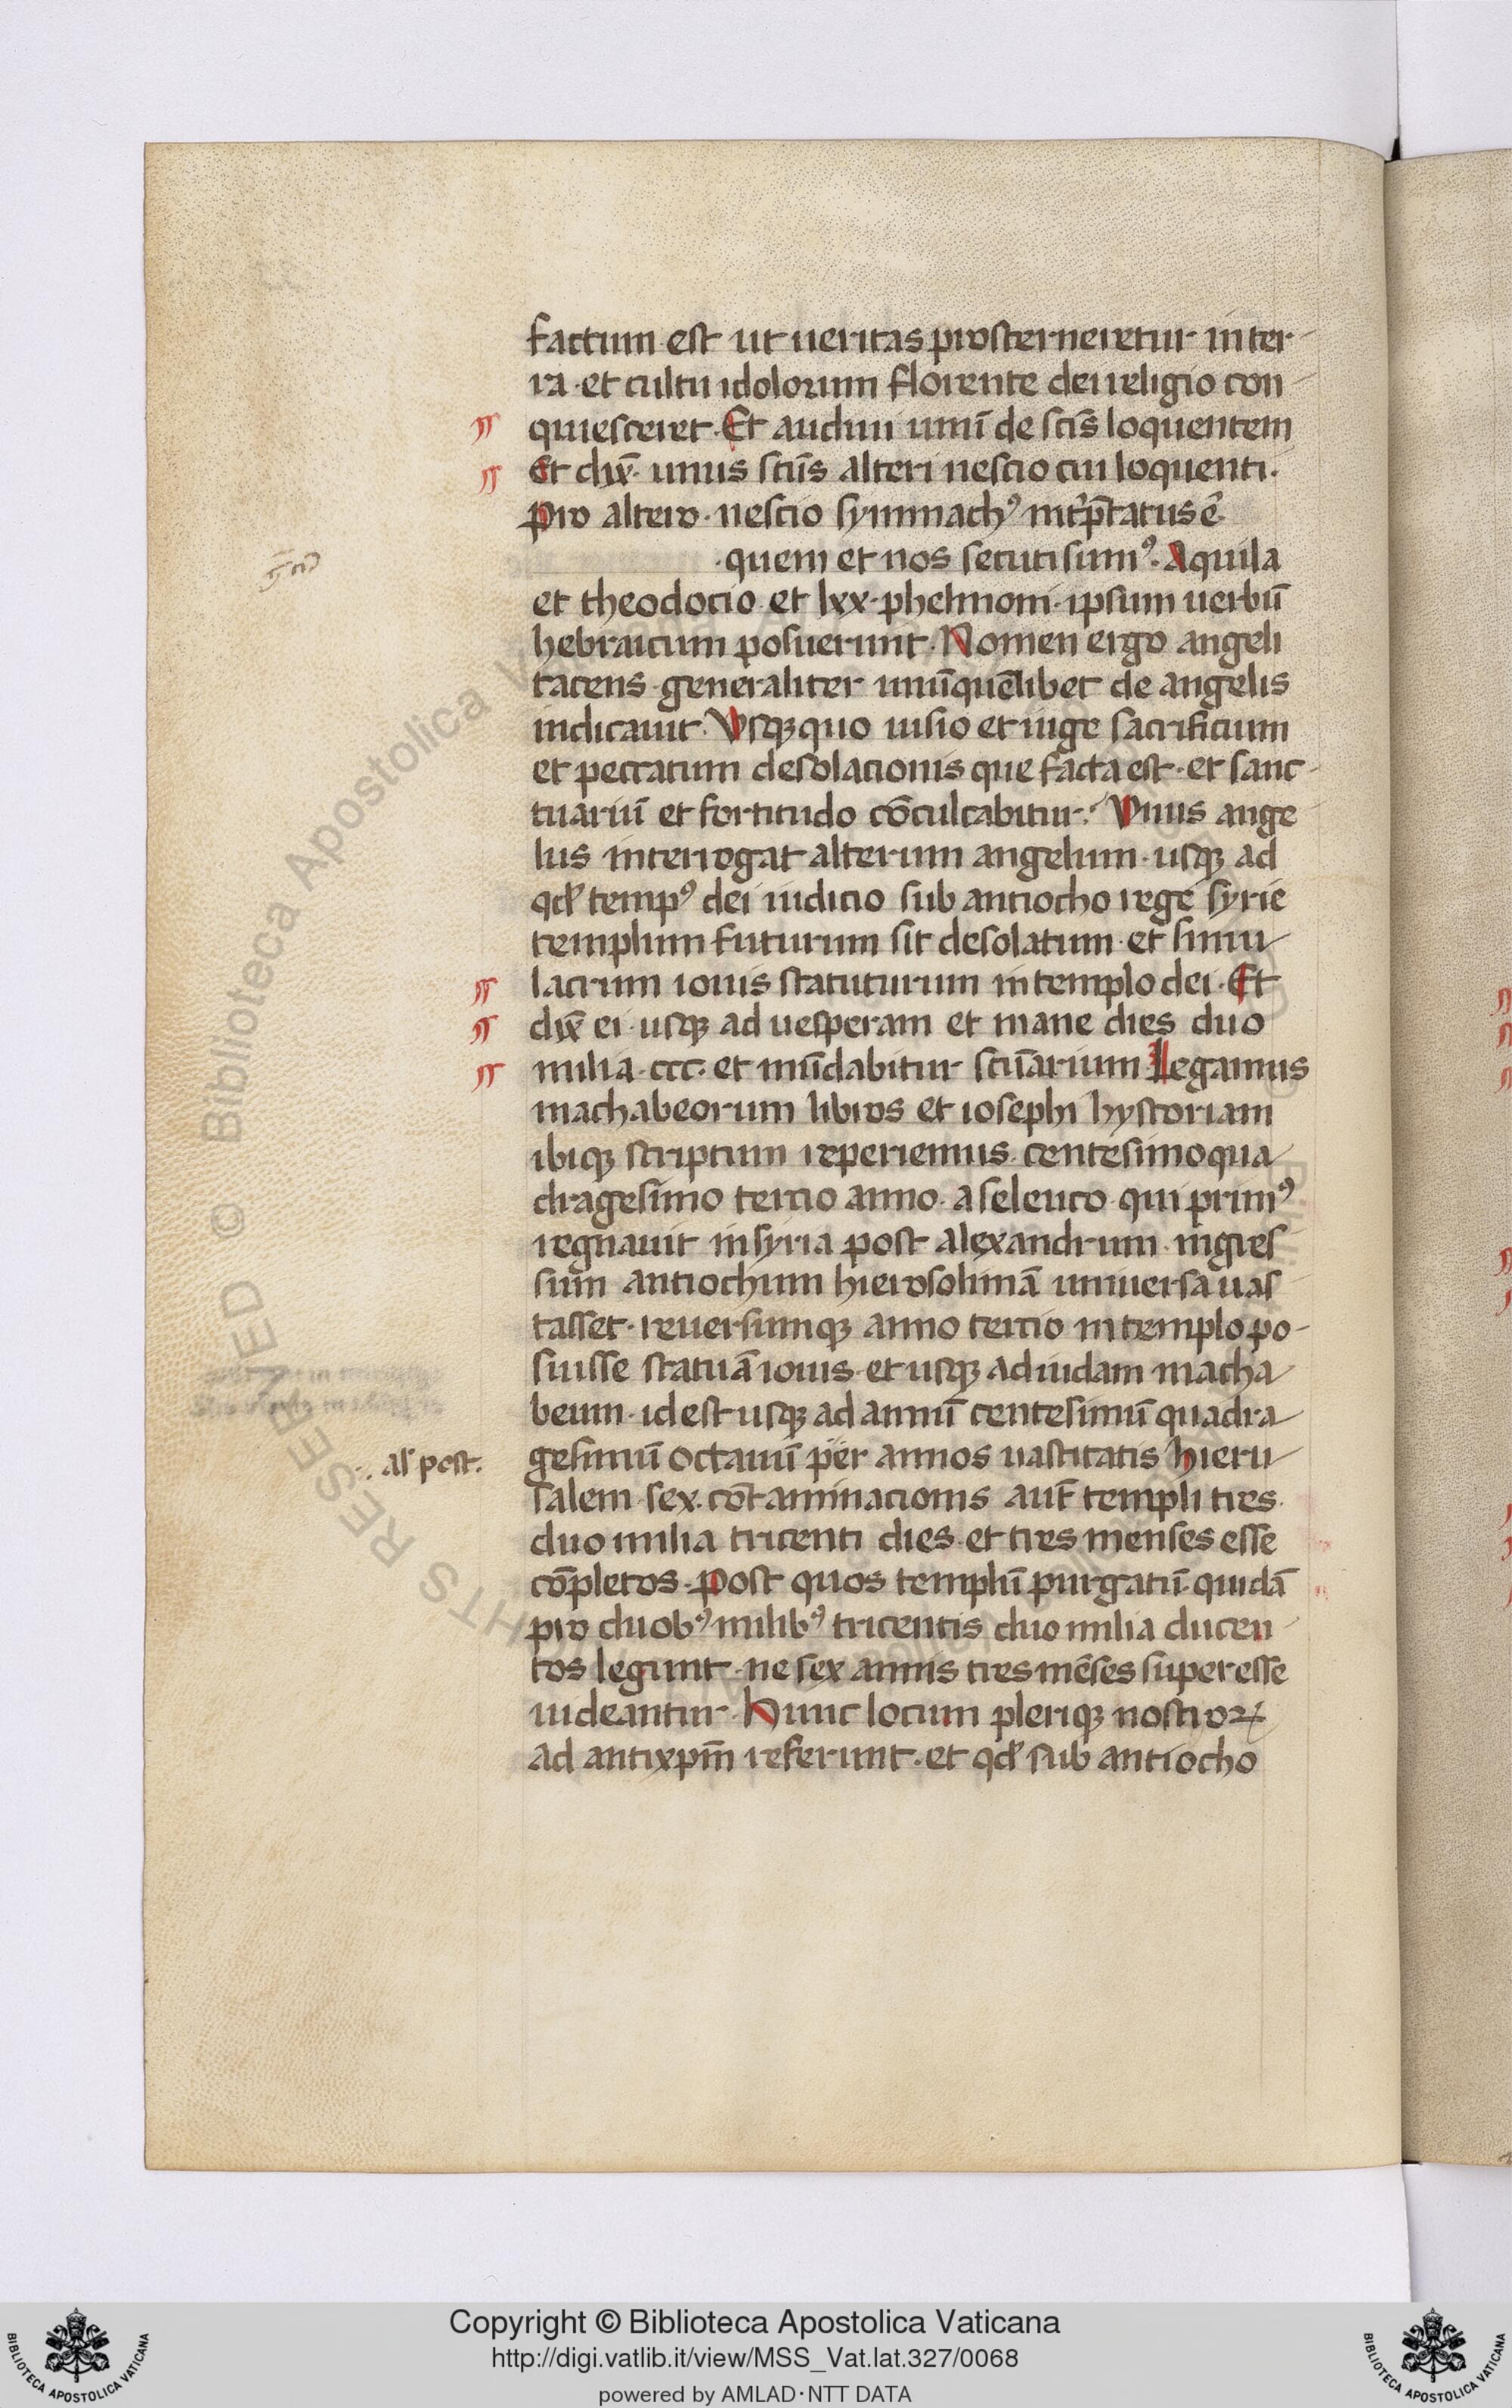 factum est ut ueritas prosterneretur in ter-
ra · et cultu idolorum florente dei religio con-
quiesceret · Et audiui unū de scīs loquentem
Et dix̄ · unus scūs alteri nescio cui loquenti ·
pro altero · nescio symmachꝰ int̄p̄tatus ē
· quem et nos secuti sumꝰ · Aquila
et theodocio · et lxx · phelmoni · ipsum uerbū
hebraicum posuerunt · Nomen ergo angeli
tacens · generaliter unūquēlibet de angelis
indicauit · Vsqꝫ quo uisio et iuge sacrificium
et peccatum desolacionis que facta est · et sanc-
tuariū et fortitudo cōculcabitur · Vnus ange
lus interrogat alterum angelum · usqꝫ ad
qd̄ tempꝰ dei iudicio sub antiocho rege syrie
templum futurum sit desolatum · et simu-
lacrum iouis statuturum in templo dei · Et
dix̄ ei · usqꝫ ad uesperam et mane dies duo
milia · ccc · et mūdabitur scūarium Legamus
machabeorum libros et iosephi hystoriam
ibiqꝫ scriptum reperiemus · centesimo qua-
dragesimo tercio anno · a seleuco · qui primꝰ
regnauit in syria post alexandrum · ingres
sum antiochum hierosolimā uniuersa uas
tasset · reuersumqꝫ anno tercio in templo po-
suisse statuā iouis · et usqꝫ ad iudam macha-
beum · id est usqꝫ ad annū centesimū quadra-
gesimū octauū per annos uastitatis hieru-
·. al̄ post.
salem · sex · cōtaminacionis aut̄ templi tres ·
duo milia tricenti dies · et tres menses esse
cōpletos · Post quos templū purgatū · quidā
pro duobꝰ milibꝰ tricentis duo milia ducen-
tos legunt · ne sex annis tres mēses superesse
uideantur · Hunc locum pleriqꝫ nostroꝝ
ad antixpm̄ referunt · et qd̄ sub antiocho
Copyright © Biblioteca Apostolica Vaticana
http://digi.vatlib.it/view/MSS_Vat.lat.327/0068
powered by AMLAD·NTT DATA
BIBLIOTECA APOSTOLICA VATICANA
BIBLIOTECA APOSTOLICA VATICANA